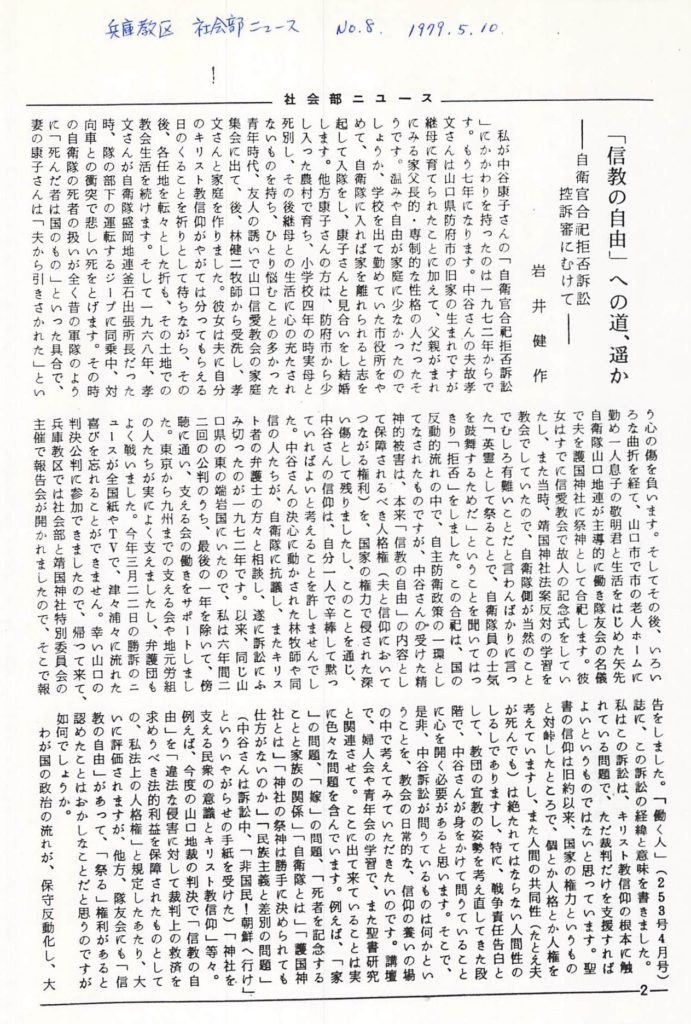 兵庫教区 社会部ニュース No.8. 1979.5.10.
社会部ニュース
「信教の自由」への道、遥か
――自衛官合祀拒否訴訟
控訴審にむけて――
岩井健作
私が中谷康子さんの「自衛官合祀拒否訴訟
」にかかわりを持ったのは一九七二年からで
す。もう七年になります。中谷さんの夫故孝
文さんは山口県防府市の旧家の生まれですが
継母に育てられたことに加えて、父親がまれ
にみる家父長的・専制的な性格の人だったそ
うです。温みや自由が家庭に少なかったので
しょうか、学校を出て勤めていた市役所をや
めて、自衛隊に入れば家を離れられると志を
起して入隊をし、康子さんと見合いをし結婚
します。他方康子さんの方は、防府市から少
し入った農村で育ち、小学校四年の時実母と
死別し、その後継母との生活に心の充たされ
ないものを持ち、ひとり悩むことの多かった
青年時代、友人の誘いで山口信愛教会の家庭
集会に出て、後、林健二牧師から受洗し、孝
文さんと家庭を作りました。彼女は夫に自分
のキリスト教信仰がやがては分ってもらえる
日のくることを祈りとして待ちながら、その
後、各任地を転々とした折も、その土地での
教会生活を続けます。そして一九六八年、孝
文さんが自衛隊盛岡地連釜石出張所長だった
時、隊の部下の運転するジープに同乗中、対
向車との衝突で悲しい死をとげます。その時
の自衛隊の死者の扱いが全く昔の軍隊のよう
に「死んだ者は国のもの」といった具合で、
妻の康子さんは「夫から引きさかれた」とい
う心の傷を負います。そしてその後、いろい
ろな曲折を経て、山口市で市の老人ホームに
勤め一人息子の敬明君と生活をはじめた矢先
自衛隊山口地連が主導的に働き隊友会の名儀
で夫を護国神社に祭神として合祀します。彼
女はすでに信愛教会で故人の記念式をしてい
たし、また当時、靖国神社法案反対の学習を
教会でしていたので、自衛隊側が当然のこと
でむしろ有難いことだと言わんばかりに言っ
た「英霊として祭ることで、自衛隊員の士気
を鼓舞するためだ」ということを聞いてはっ
きり「拒否」をしました。この合祀は、国の
反動的流れの中で、自主防衛政策の一環とし
てなされたものですが、中谷さんの受けた精
神的被害は、本来「信教の自由」の内容とし
て保障されるべき人格権（夫と信仰において
つながる権利）を、国家の権力で侵された深
い傷として残りました、このことを通じ、
中谷さんの信仰は、自分一人で辛棒して黙っ
ていればよいと考えることを許しませんでし
た。中谷さんの決心に動かされた林牧師や同
信の人たちが、自衛隊に抗議し、またキリス
ト者の弁護士の方々と相談し、遂に訴訟にふ
み切ったのが一九七二年です。以来、同じ山
口県の東の端岩国にいたので、私は六年間二
二回の公判のうち、最後の一年を除いて、傍
聴に通い、支える会の働きをサポートしまし
た。東京から九州までの支える会や地元労組
の人たちが実によく支えましたし、弁護団も
よく戦いました。今年三月二二日の勝訴のニ
ュースが全国紙やTVで、津々浦々に流れた
喜びを忘れることができません。幸い山口の
判決公判に参加できましたので、帰って来て、
兵庫教区では社会部と靖国神社特別委員会の
主催で報告会が開かれましたので、そこで報
告をしました。「働く人」（253号4月号）
誌に、この訴訟の経緯と意味を書きました。
私はこの訴訟は、キリスト教信仰の根本に触
れている問題で、ただ裁判だけを支援すれば
よいというものではないと思っています。聖
書の信仰は旧約以来、国家の権力というもの
と対峙したところで、個とか人格とか人権を
考えていますし、また人間の共同性（たとえ夫
が死んでも）は絶たれてはならない人間性の
しるしでありますし、特に、戦争責任告白と
して、教団の宣教の姿勢を考え直してきた段
階で、中谷さんが身をかけて問うていること
に心を開く必要があると思います。そこで、
是非、中谷訴訟が問うているものは何かとい
うことを、教会の日常的な、信仰の養いの場
の中で考えてみていただきたいのです。講壇
で、婦人会や青年会の学習で、また聖書研究
と関連させて。ここに出て来ていることは実
に色々な問題を含んでいます。例えば、「家
」の問題、「嫁」の問題、「死者を記念する
ことと家族の関係」「自衛隊とは」「護国神
社とは」「神社の祭神は勝手に決められても
仕方がないのか」「民族主義と差別の問題」
（中谷さんは訴訟中、「非国民！朝鮮へ行け」
といういやがらせの手紙を受けた）「神社を
支える民衆の意識とキリスト教信仰」等々。
例えば、今度の山口地裁の判決で「信教の自
由」を「違法な侵害に対して裁判上の救済を
求めうべき法的利益を保障されたものとして
の、私法上の人格権」と規定したあたり、大
いに評価されますが、他方、隊友会にも「信
教の自由」があって、「祭る」権利があると
認めたことはおかしなことだと思うのですが
如何でしょうか。
わが国の政治の流れが、保守反動化し、大
―2―